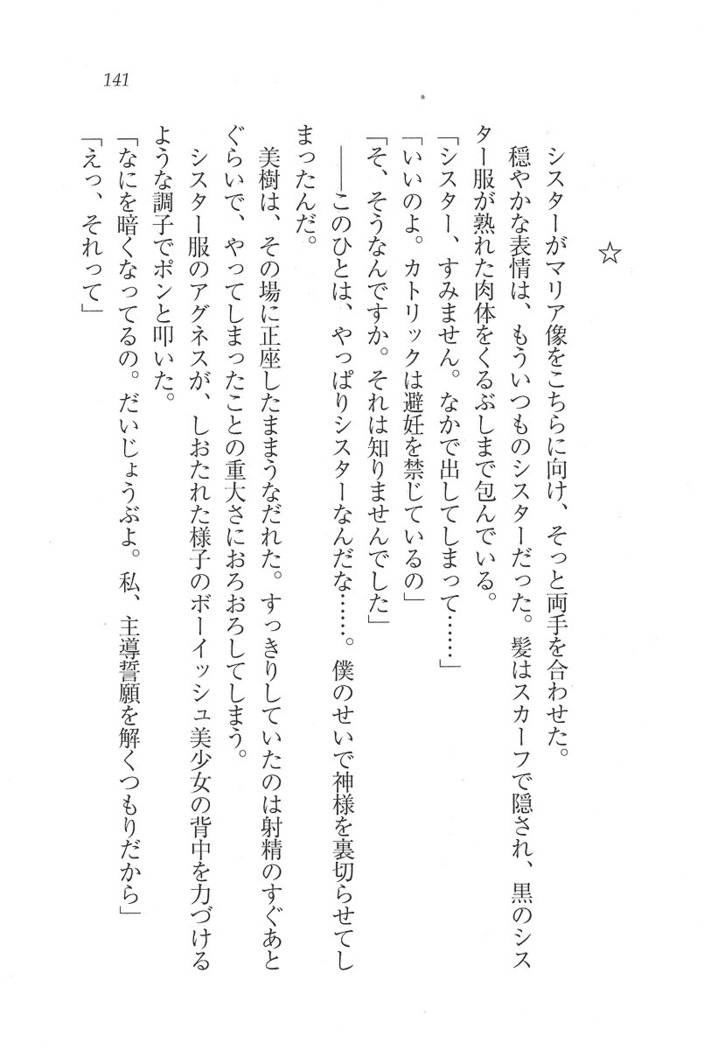 141
☆
シスターがマリア像をこちらに向け、そっと両手を合わせた。
穏やかな表情は、もういつものシスターだった。髪はスカーフで隠され、黒のシス
ター服が熟れた肉体をくるぶしまで包んでいる。
「シスター、すみません。なかで出してしまって……」
「いいのよ。カトリックは避妊を禁じているの」
「そ、そうなんですか。それは知りませんでした」
――このひとは、やっぱりシスターなんだな……。僕のせいで神様を裏切らせてし
まったんだ。
美樹は、その場に正座したままうなだれた。すっきりしていたのは射精のすぐあと
ぐらいで、やってしまったことの重大さにおろおろしてしまう。
シスター服のアグネスが、しおたれた様子のボーイッシュ美少女の背中を力づける
ような調子でポンと叩いた。
「なにを暗くなってるの。だいじょうぶよ。私、主導誓願を解くつもりだから」
「えっ、それって」